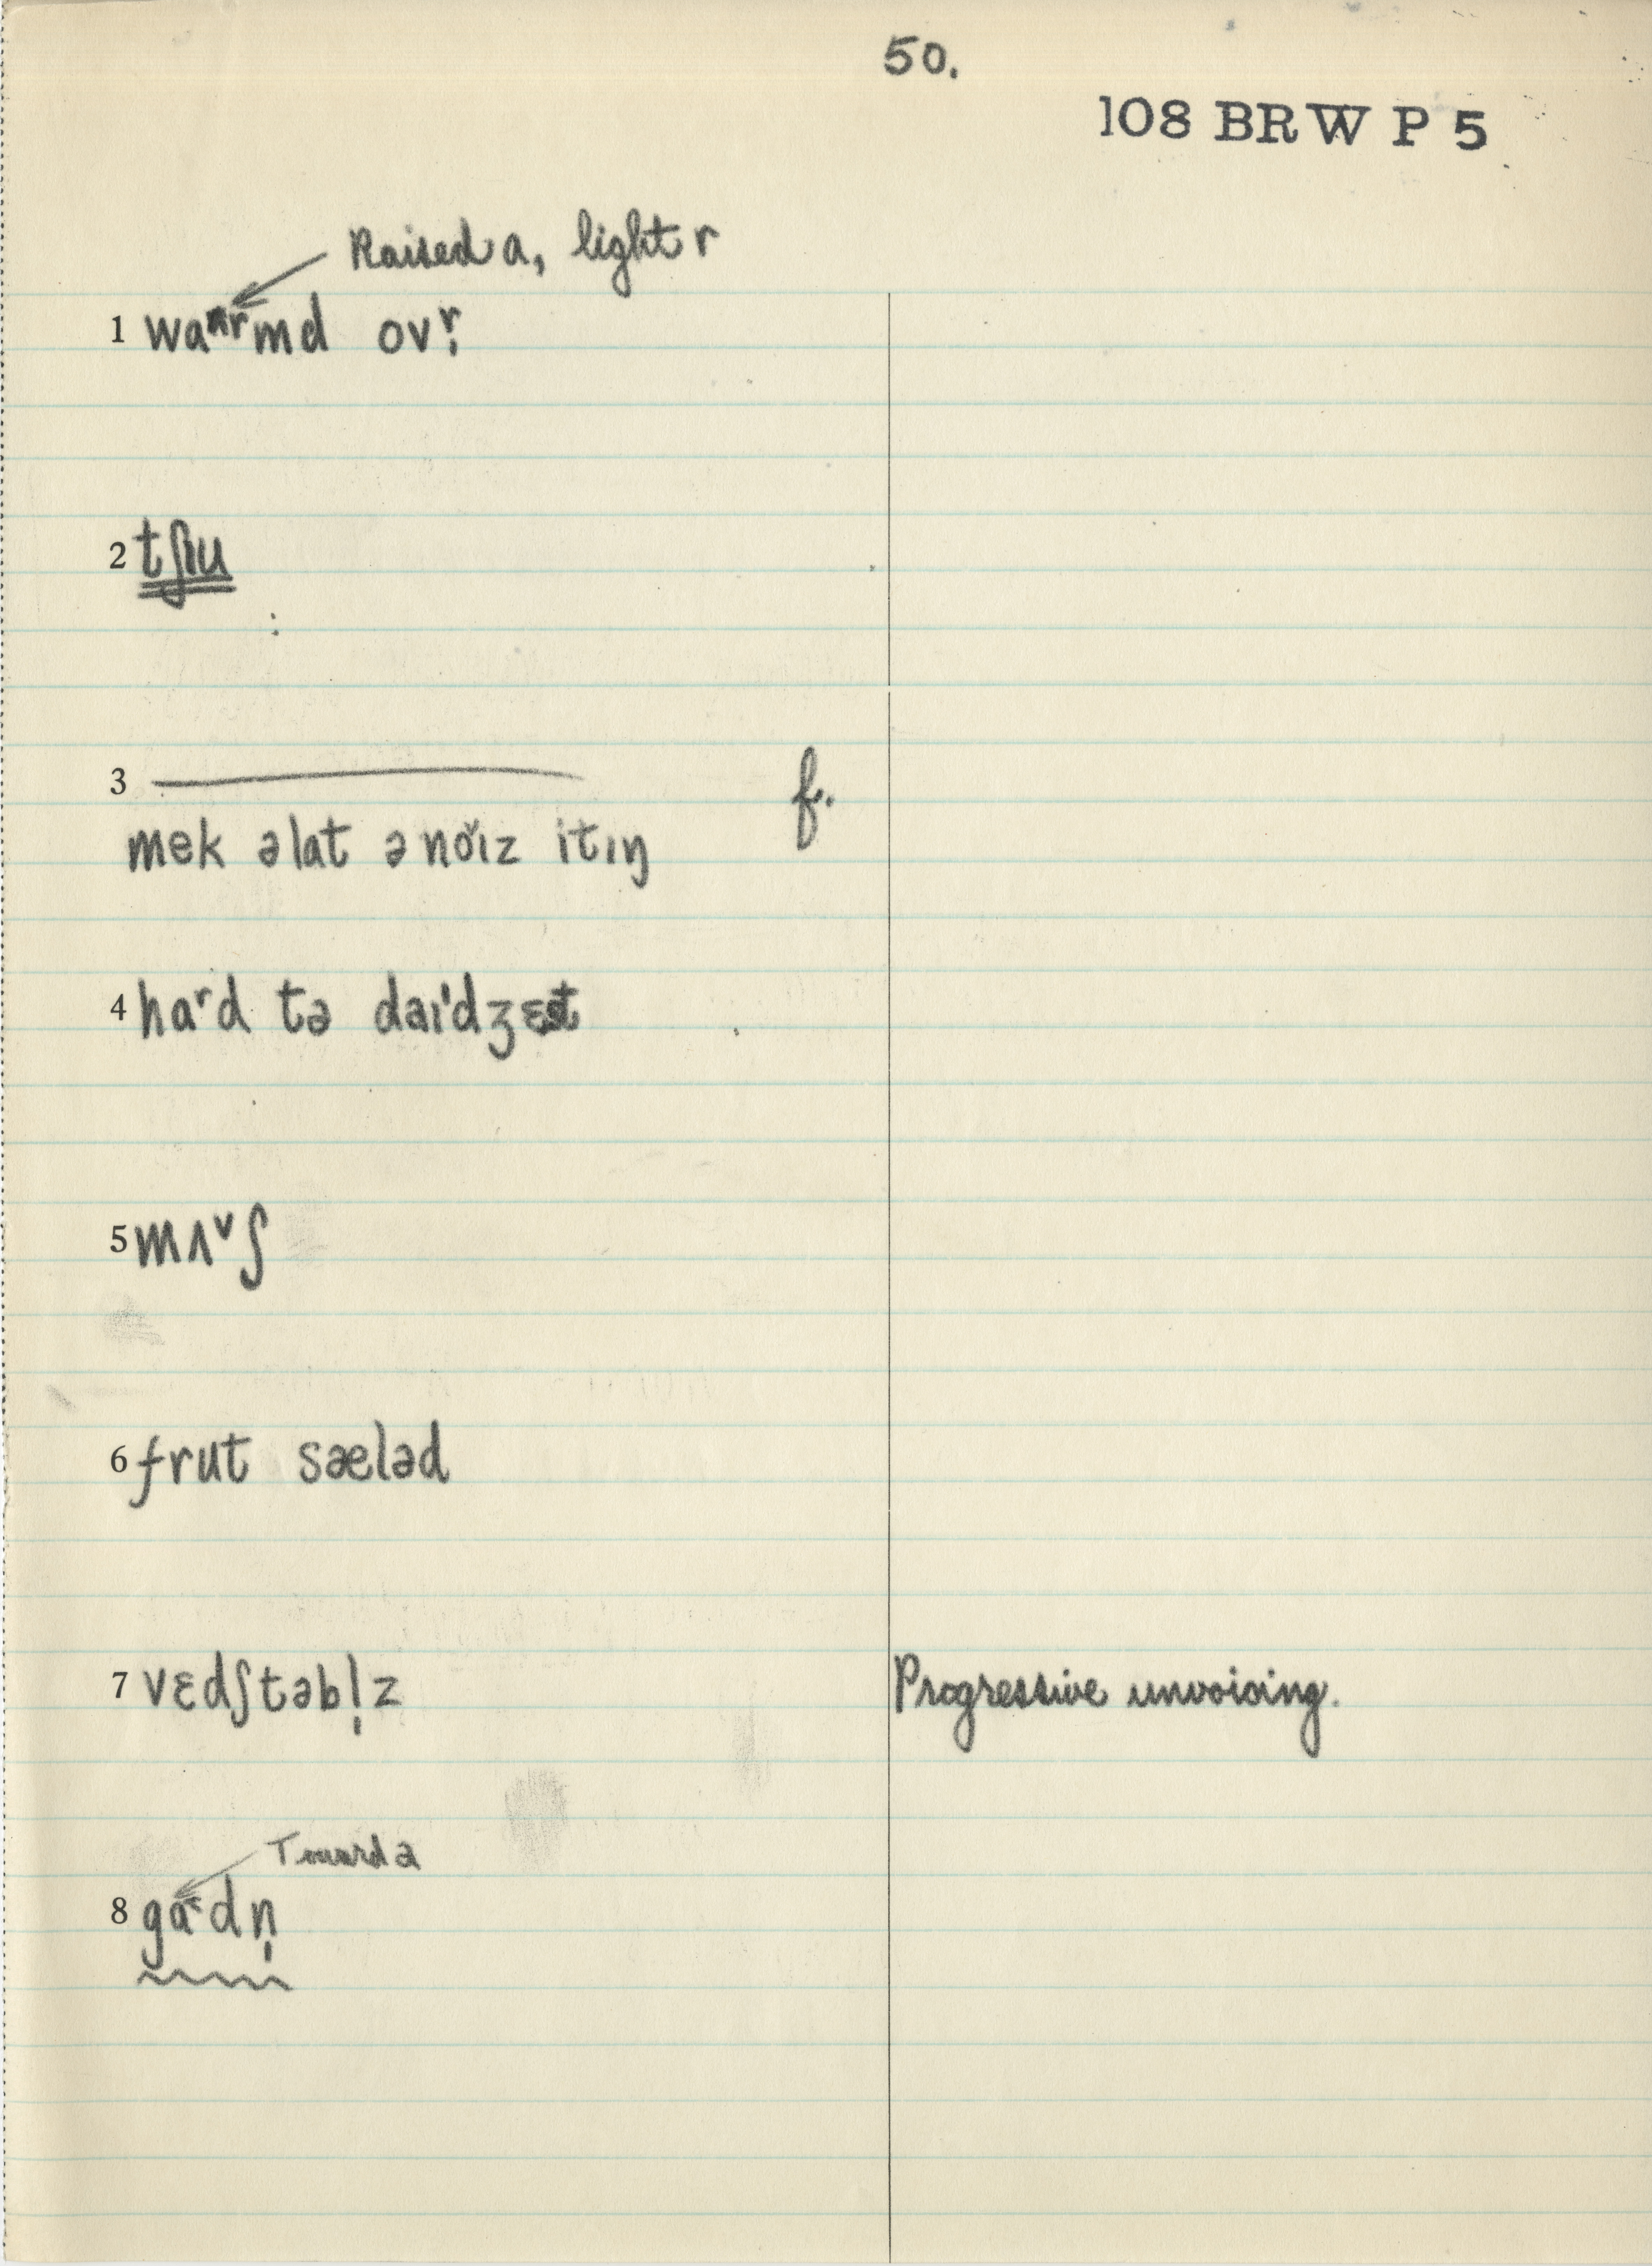 50.
108 BRW P 5
Raised a, light r
1 waʳmd ovr̩
2 tʃɪu
3
f.
mek əlat ə nɔ̌ɪz itɪŋ
4 haʳd tə daɪ'dʒɛst
5 mʌ˅ʃ
6 frut sæləd
7 vɛdʃtəbl̩z
Progressive unvoicing.
Toward a
8 ga˂dn̩